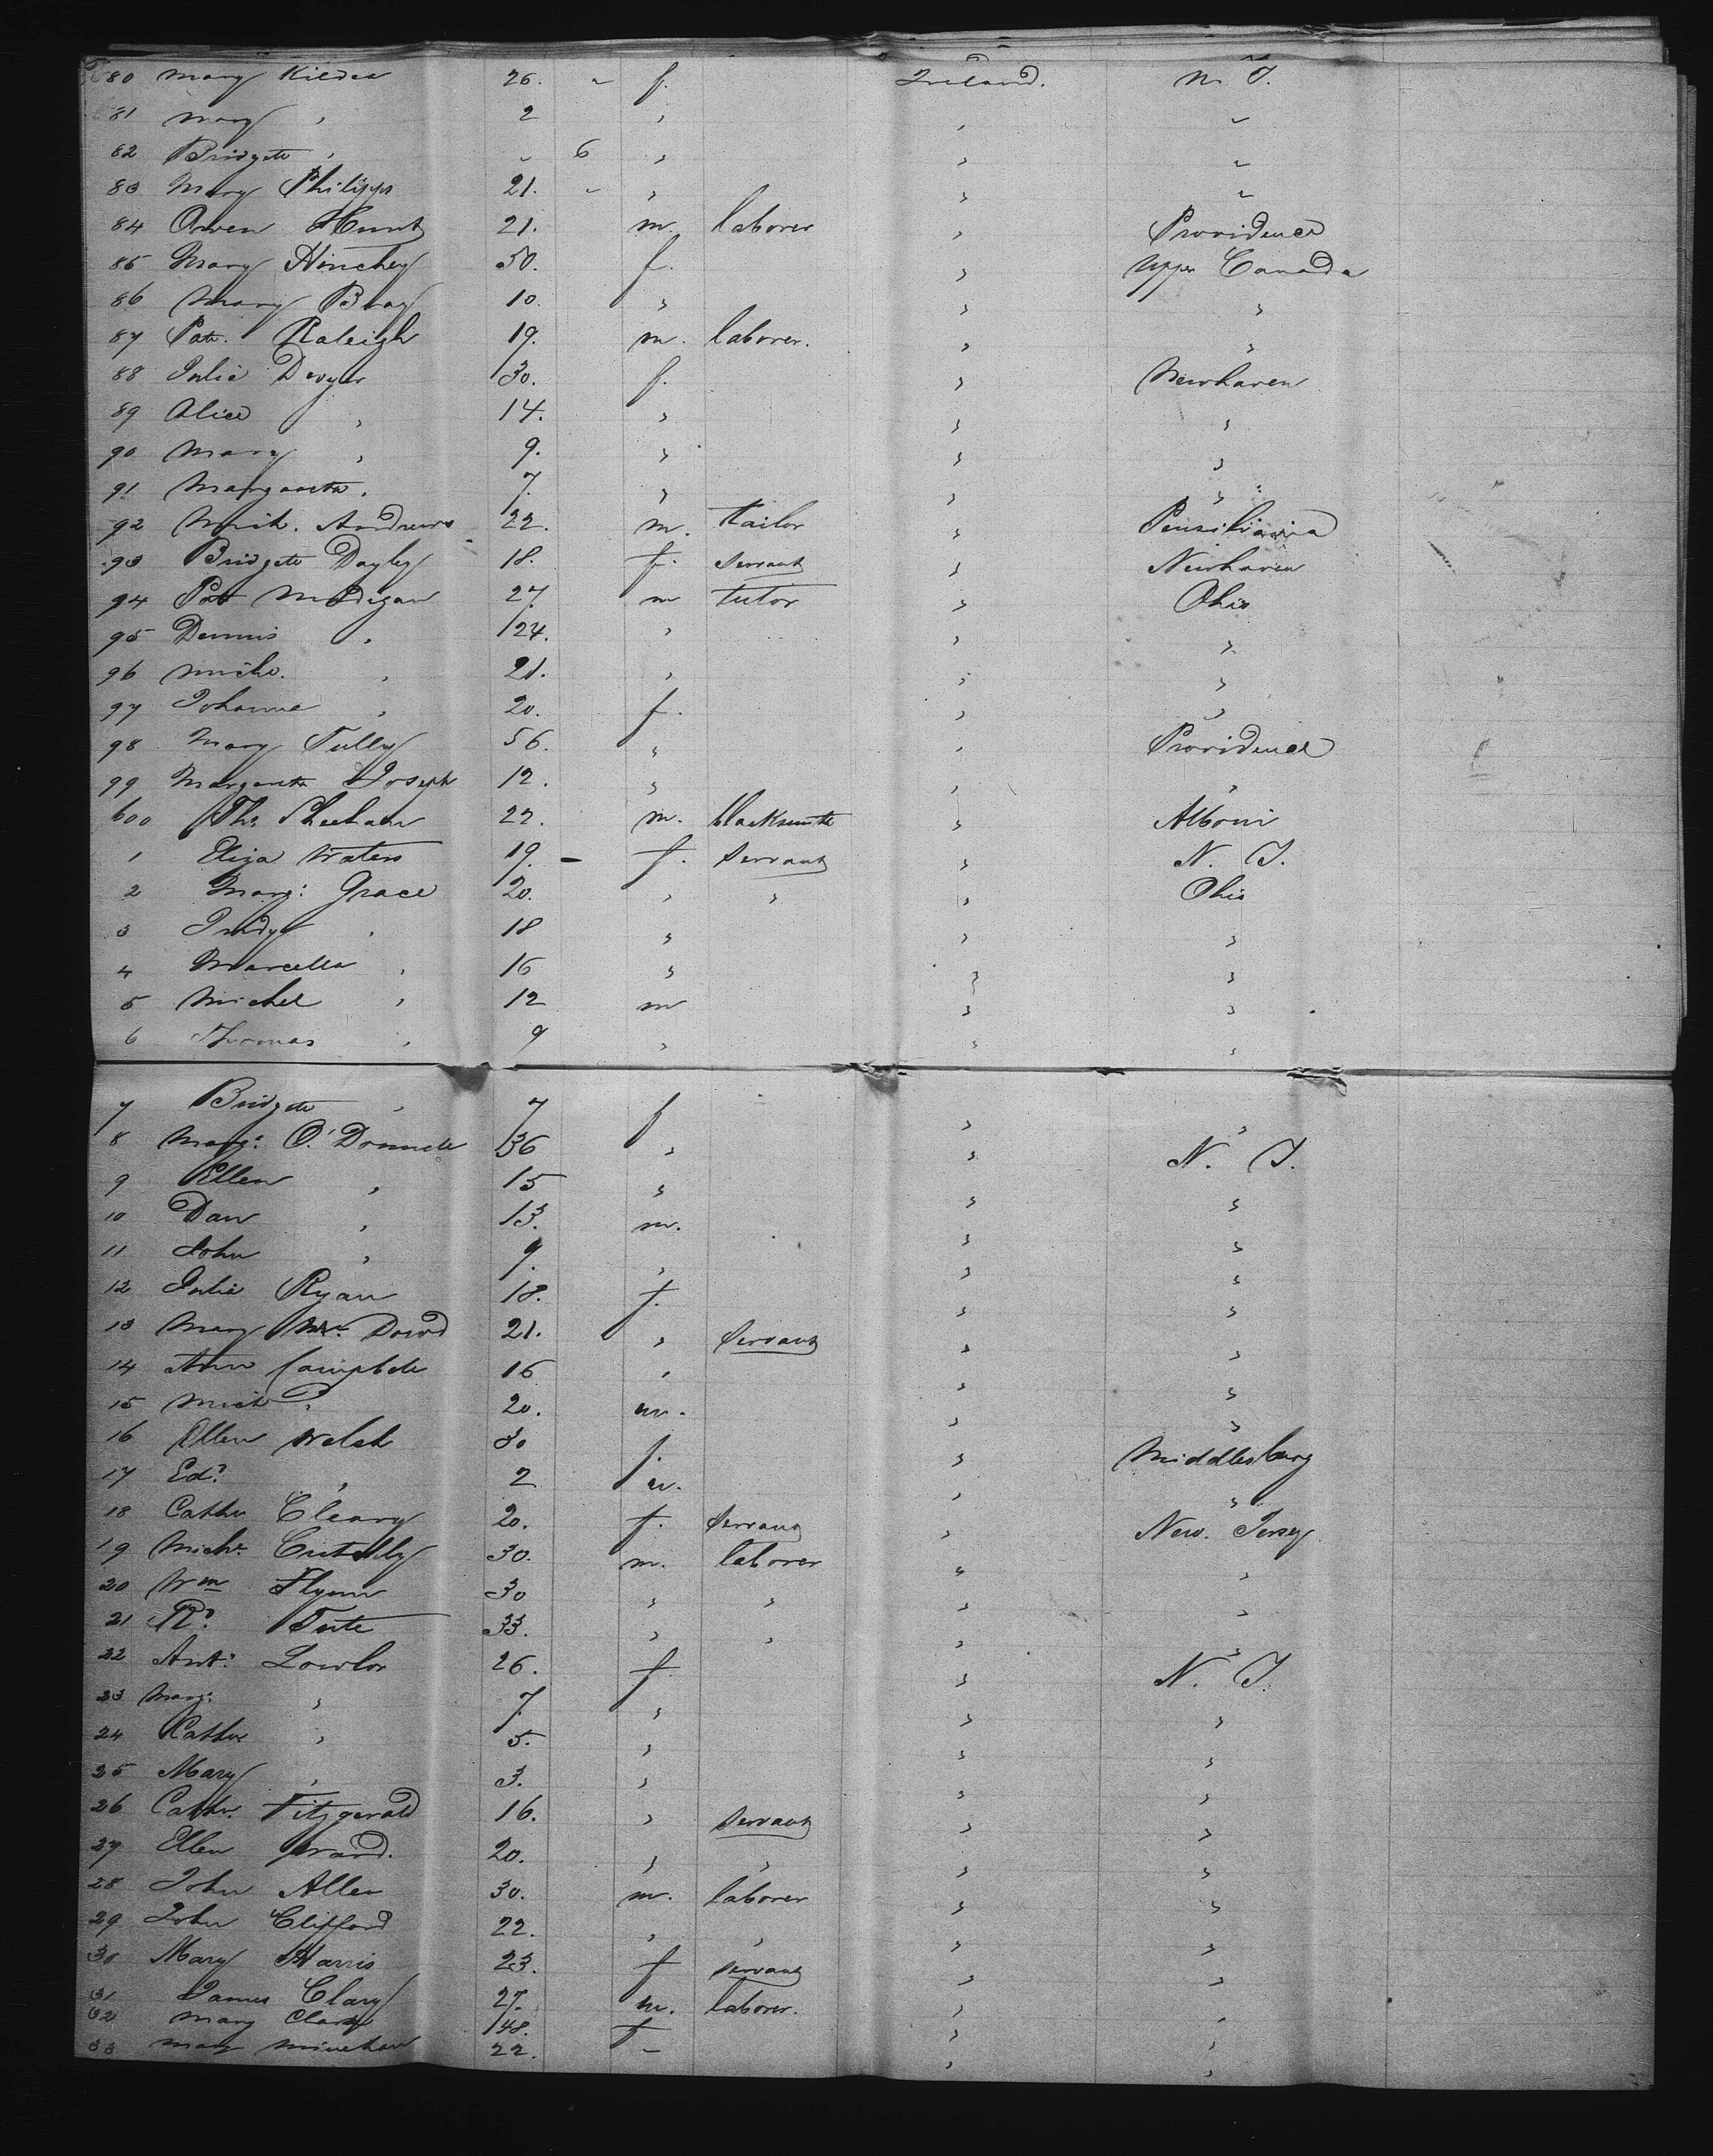 580 Mary Kildea 26. " f. Ireland. N. J.
81 Mary " 2 " " "
82 Bridgete " " 6 " " "
83 Mary Philipps 21. " " " "
84 Owen Hunt 21. m. laborer " Providence
85 Mary Hinchey 50. f. " Upper Canada
86 Mary Bray 10. " " "
87 Patr. Raleigh 19. m. laborer. " "
88 Julia Dwyer 30. f. " Newhaven
89 Alice " 14. " " "
90 Mary " 9. " " "
91 Margareta " 7. " " "
92 Mich. Andrews 22. m. tailor " Pensilvania
93 Bridgete Dayley 18. f. servant " Newhaven
94 Pat Madigan 27 m tutor " Ohio
95 Dennis " 24. " " "
96 Micho. " 21. " " "
97 Johanna " 20. f. " "
98 Mary Tully 56. " " Providence
99 Margareta Joseph 12. " " "
600 Ths. Sheehan 22. m. blacksmith " Alboni
1 Eliza Waters 19. - f. servant " N. J.
2 Marg: Grace 20. " " " Ohio
3 Judy " 18 " " "
4 Marcella " 16 " " "
5 Michel " 12 m " "
6 Thomas " 9 " " "
7 Bridgete " 7 f " "
8 Marg: O'Donnele 36 " " N. J.
9 Ellen " 15 " " "
10 Dan " 13. m. " "
11 John " 9. " " "
12 Julia Ryan 18. f. " "
13 Mary Mc. Dowd 21. " servant " "
14 Ann Campbele 16 " " "
15 Mich " 20. m. " "
16 Ellen Welsh 30 f. " Middlesburg
17 Ed: " 2 m. " "
18 Cathe Cleary 20. f. servant " New. Jersey
19 Mich. 30. m. laborer " "
20 Wm Flynn 30 " " " "
21 Tute 33. " " " "
22 Ant: Lowlor 26. f " N. J.
23 Marg: " 7 " " "
24 Cathe " 5. " " "
25 Mary " 3. " " "
26 Cathe. Fitzgerald 16. " servant " "
27 Ellen Ward. 20. " " " "
28 John Allen 30. m. laborer " "
29 John Clifford 22. " " " "
30 Mary Harris 23. f servant " "
31 James Clary 27. m. laborer. " "
32 Mary Clary 48. f " "
33 Mary Minehan 22. " " "